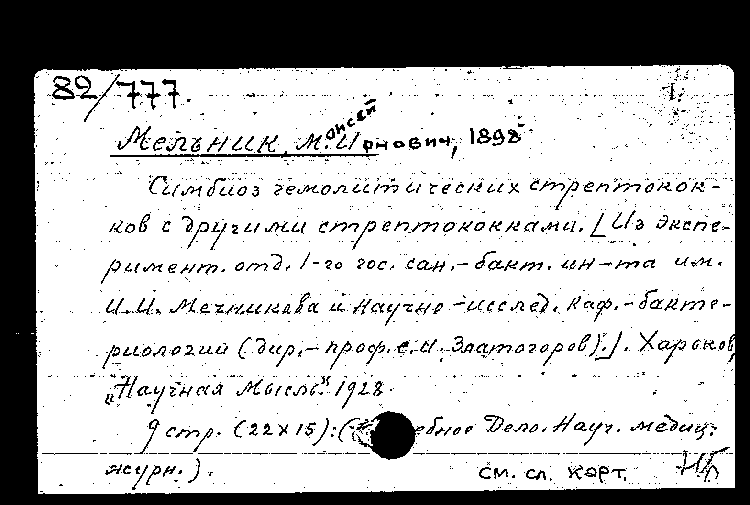 82/777.
Мельник, Моисей Ирнович, 1898
Симбиоз гемолитических стрептокок-
ков с другими стрептококками. [Из экспе-
римент. отд. 1-го гос. сан.-бакт. ин-та им.
И.И. Мечникова и научно-исслед. каф.-бакте-
риологии (дир.- проф. С.И. Златогоров).]. Харьков,
„Научная Мысль". 1928.
9 стр. (22х15): ( ебное Дело. Науч. медиц.
журн.).
см. сл. карт.